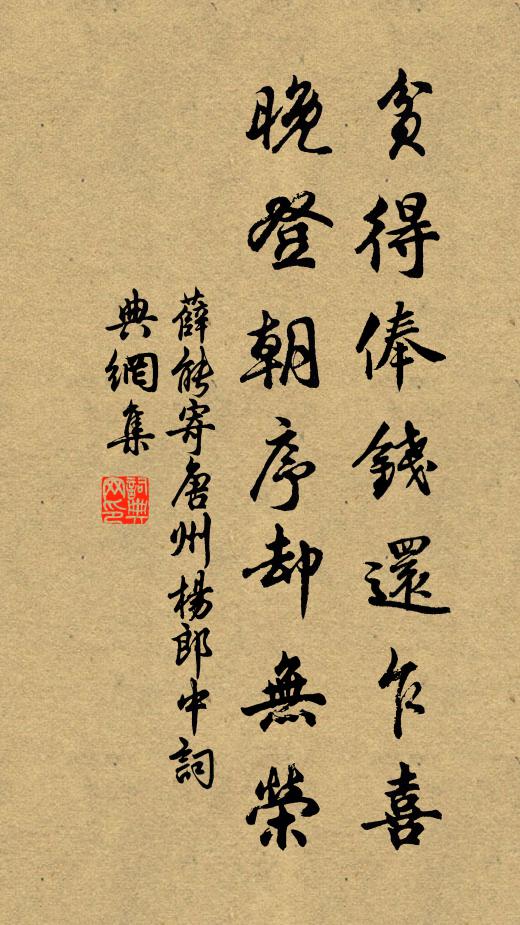 貧得俸錢還乍喜
晚登朝序却無榮
薛能寄唐州楊郎中詞
典網集
詞典
网印